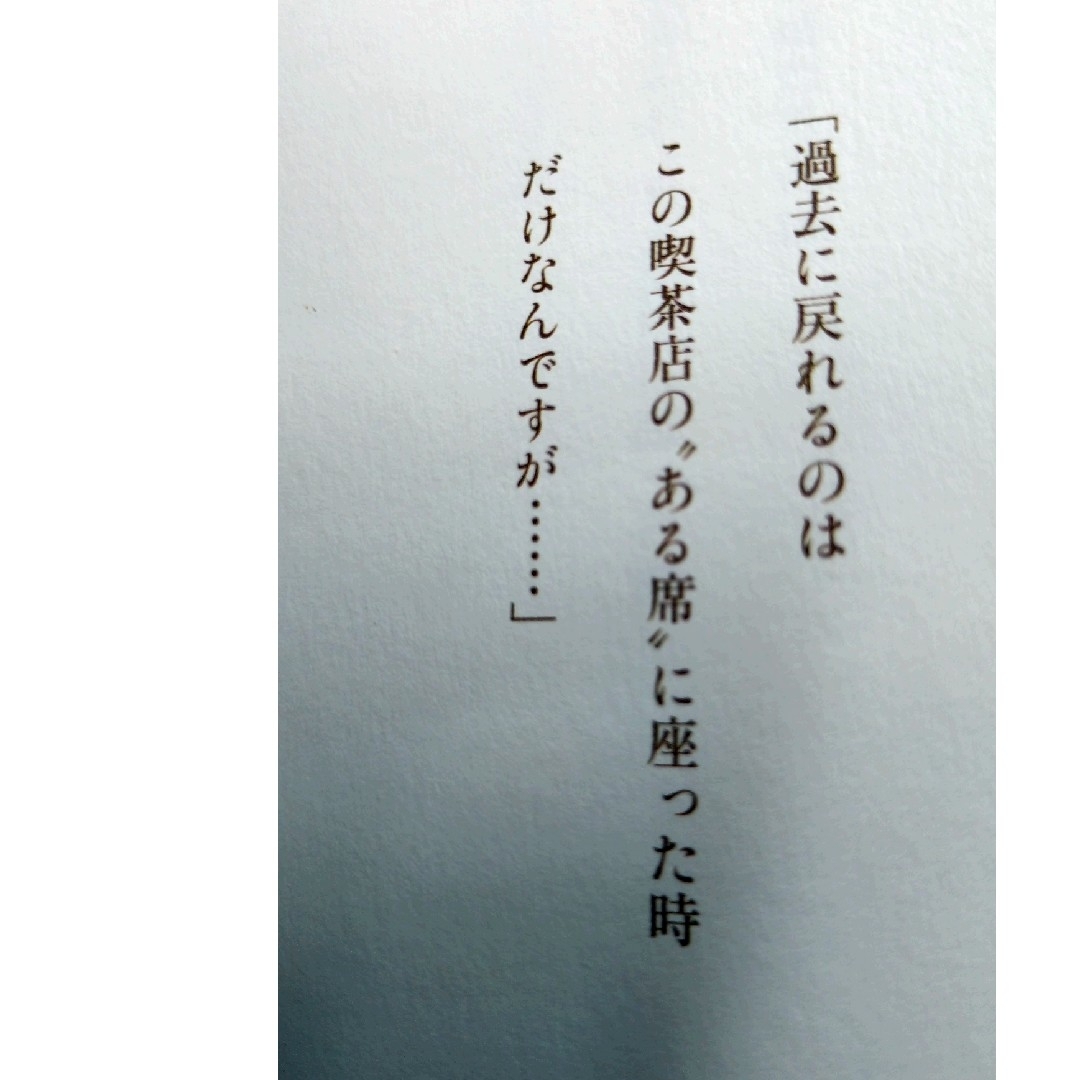 「過去に戻れるのは
この喫茶店の〝ある席〟に座った時
だけなんですが……」